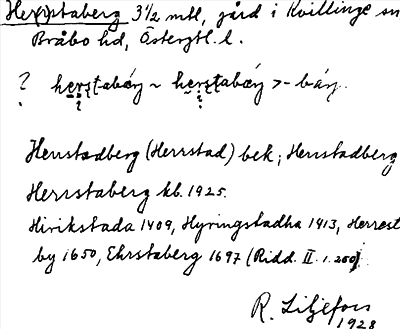 Herrstaberg 3 1/2 mtl, gård i Kvillinge sn
Bråbo hd, Östergtl. l.
? herstabærj ~ herstabærj >-bärj.
Herrstadberg (Herrstad) bek; Herrstadberg
Herrstaberg kb. 1925.
Hirikstada 1409, Hyringstadha 1413, Herrest
by 1650, Ehrstaberg 1697 (Ridd. II. 1. 250).
R. Liljefors
1928